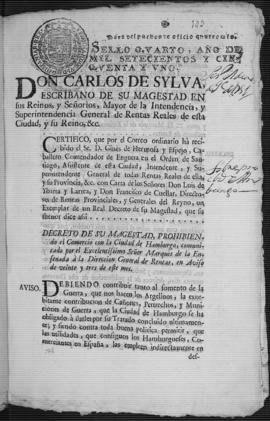 Para despachos de oficio quatro mrs.
SELLO QVARTO, AÑO DE
MIL SETECIENTOS Y CIN-
QVENTA Y VNO.
DON CARLOS DE SYLVA,
ESCRIBANO DE SU MAGESTAD EN
sus Reinos, y Señorios, Mayor de la Intendencia, y
Superintendencia General de Rentas Reales de esta
Ciudad, y su Reino, &c.
CERTIFICO, que por el Correo ordinario ha recibido
el Sr. D. Ginès de Hermosa y Espejo, Ca-
ballero Comendador de Enguera en el Orden de San-
tiago, Asistente de esta Ciudad, Intendente, y Su-
perintendente General de todas Rentas Reales de ella
y su Provincia, &c. con Carta de los Señores Don Luis de
Ybarra y Larrea, y Don Francisco de Cuellar, Directo-
res de Rentas Provinciales, y Generales del Reyno, un
Exemplar de un Real Decreto de su Magestad, que su
thenor dice asi
DECRETO DE SU MAGESTAD, PROHIBIEN-
do el Comercio con la Ciudad de Hamburgo, comuni-
cado por el Excelentissimo Señor Marquès de la En-
senada à la Direccion General de Rentas, en Aviso
de veinte y tres de este mes.
AVISO. DEBIENDO contribuir tanto al fomento de la
Guerra, que nos hacen los Argelinos, la exor-
bitante contribucion de Cañones, Pertrechos, y Mu-
niciones de Guerra, que la Ciudad de Hamburgo se ha
obligado à darles por su Tratado concluido ultimamen-
te; y siendo contra toda buena politica permitir, que
las utilidades, que consiguen los Hamburgueses, Co-
merciantes en España, las empleen indirectamente en
des-